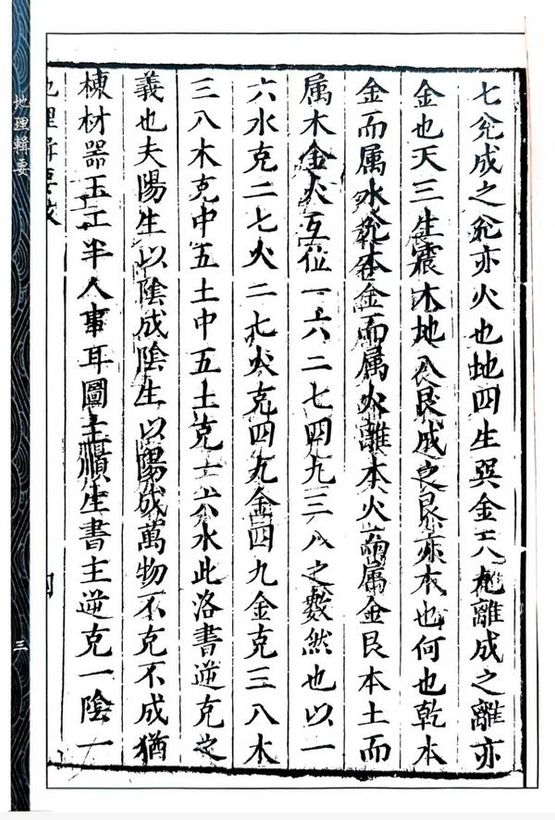 七兊成之兊亦火也地四生巽金天九離成之離亦
金也天三生震木地八艮成之艮亦木也何也乾本
金而属水兊本金而属火離本火而属金艮本土而
属木金火互位一六二七四九三八之數然也以一
六水克二七火二七火克四九金四九金克三八木
三八木克中五土中五土克一六水此洛書逆克之
義也夫陽生以陰成陰生以陽成萬物不克不成猶
棟材器玉工半人事耳圖主順生書主逆克一陰一
地理輯要
地理輯要
三